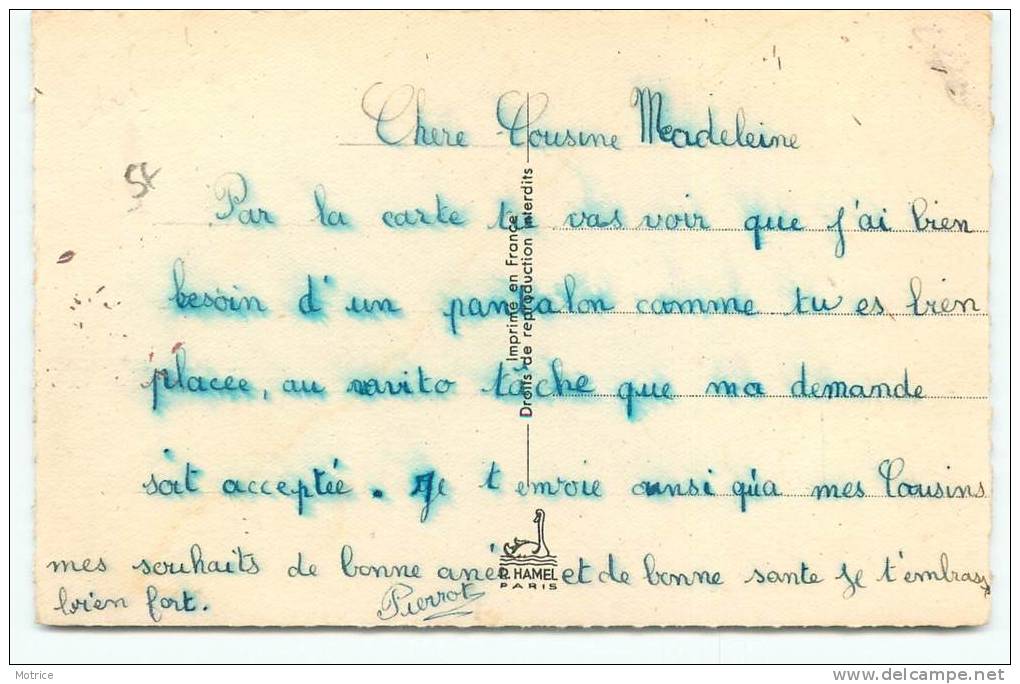 Chere Cousine Madeleine
54
Par la carte tu vas voir que j'ai bien
besoin d'un pantalon comme tu es bien
placee, au ravito tâche que ma demande
soit acceptée. Je t'envoie ainsi qu'a mes Cousins
mes souhaits de bonne anée et de bonne sante je t'embrass
bien fort. Pierrot
Imprimé en France
Droits de reproduction interdits
R. HAMEL
PARIS
Motrice
delcampe.net